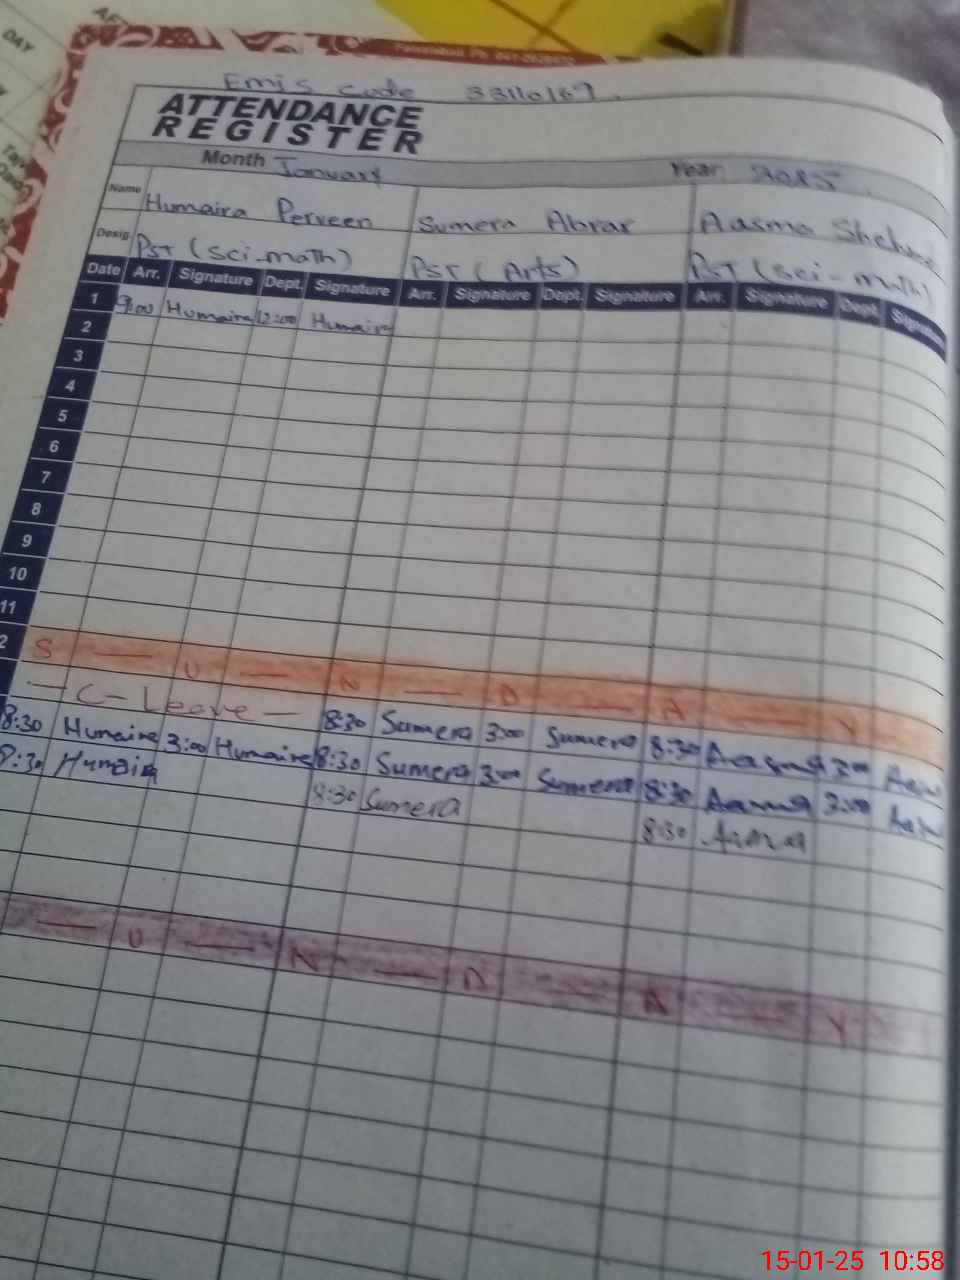 DAY
Emis code 33110167.
ATTENDANCE
REGISTER
Month January Year 2025
Name Humaira Perveen Sumera Abrar Aasma
Desig. PST (sci-math) PST (Arts) PST (sci-math)
Date Arr. Signature Dept. Signature Arr. Signature Dept. Signature Arr. Signature Dept Signature
1 9:00 Humaira 12:00 Humaira
2
3
4
5
6
7
8
9
10
11
2 S — U — N — D — A — Y
— C - Leave — 8:30 Sumera 3:00 Sumera 8:30 Aasma 3:00
8:30 Humaira 3:00 Humaira 8:30 Sumera 3:00 Sumera 8:30 Aasma 3:00
8:30 Humaira 8:30 Sumera 8:30 Asma
— U — N — D — A — Y
15-01-25 10:58